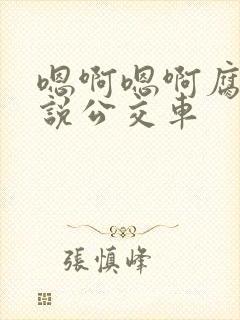 嗯啊嗯啊腐
說公交車
張慎峰